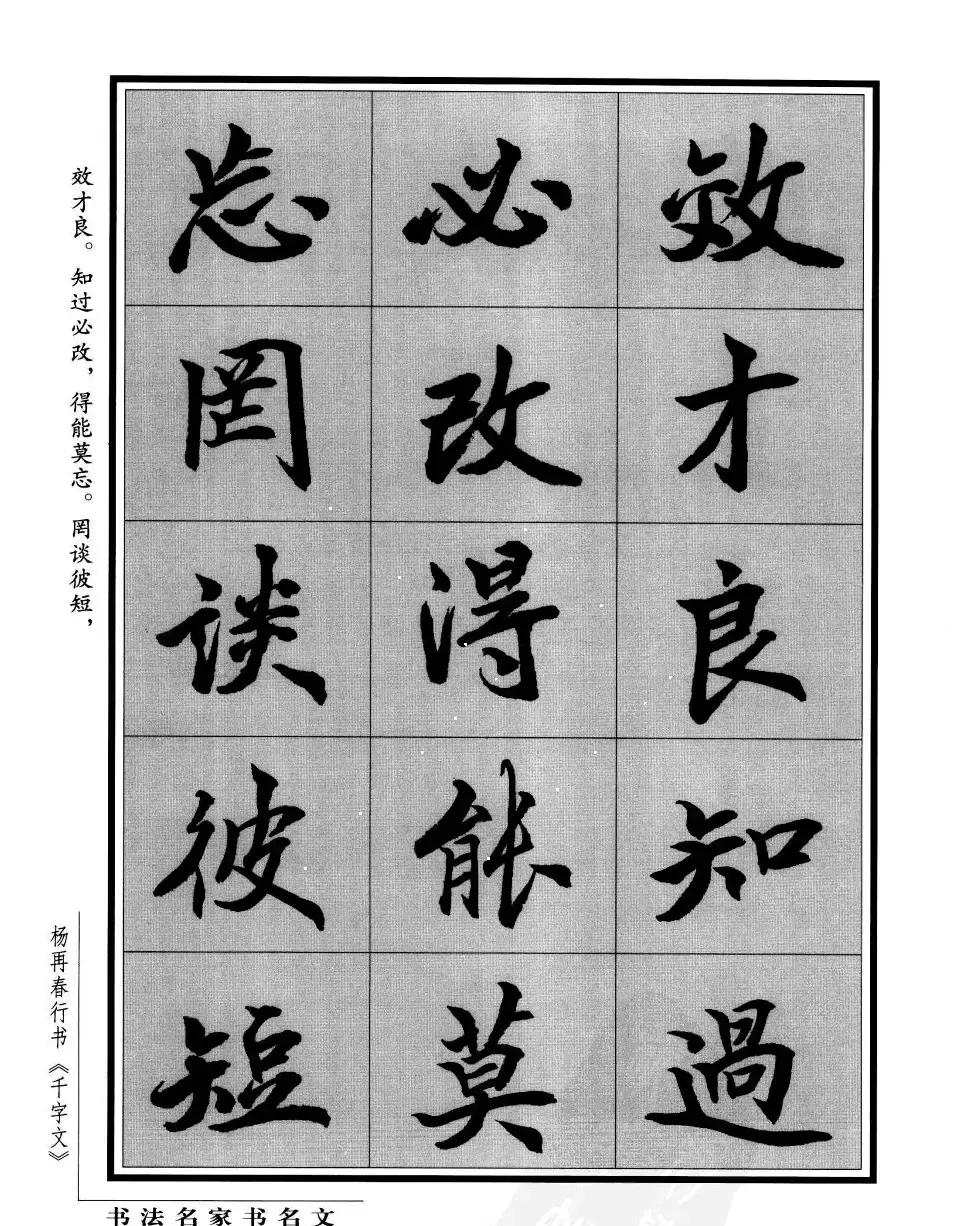 效才良知過
必改得能莫
忘罔谈彼短
效才良。知过必改，得能莫忘。罔谈彼短，
杨再春行书《千字文》
书法名家书名文